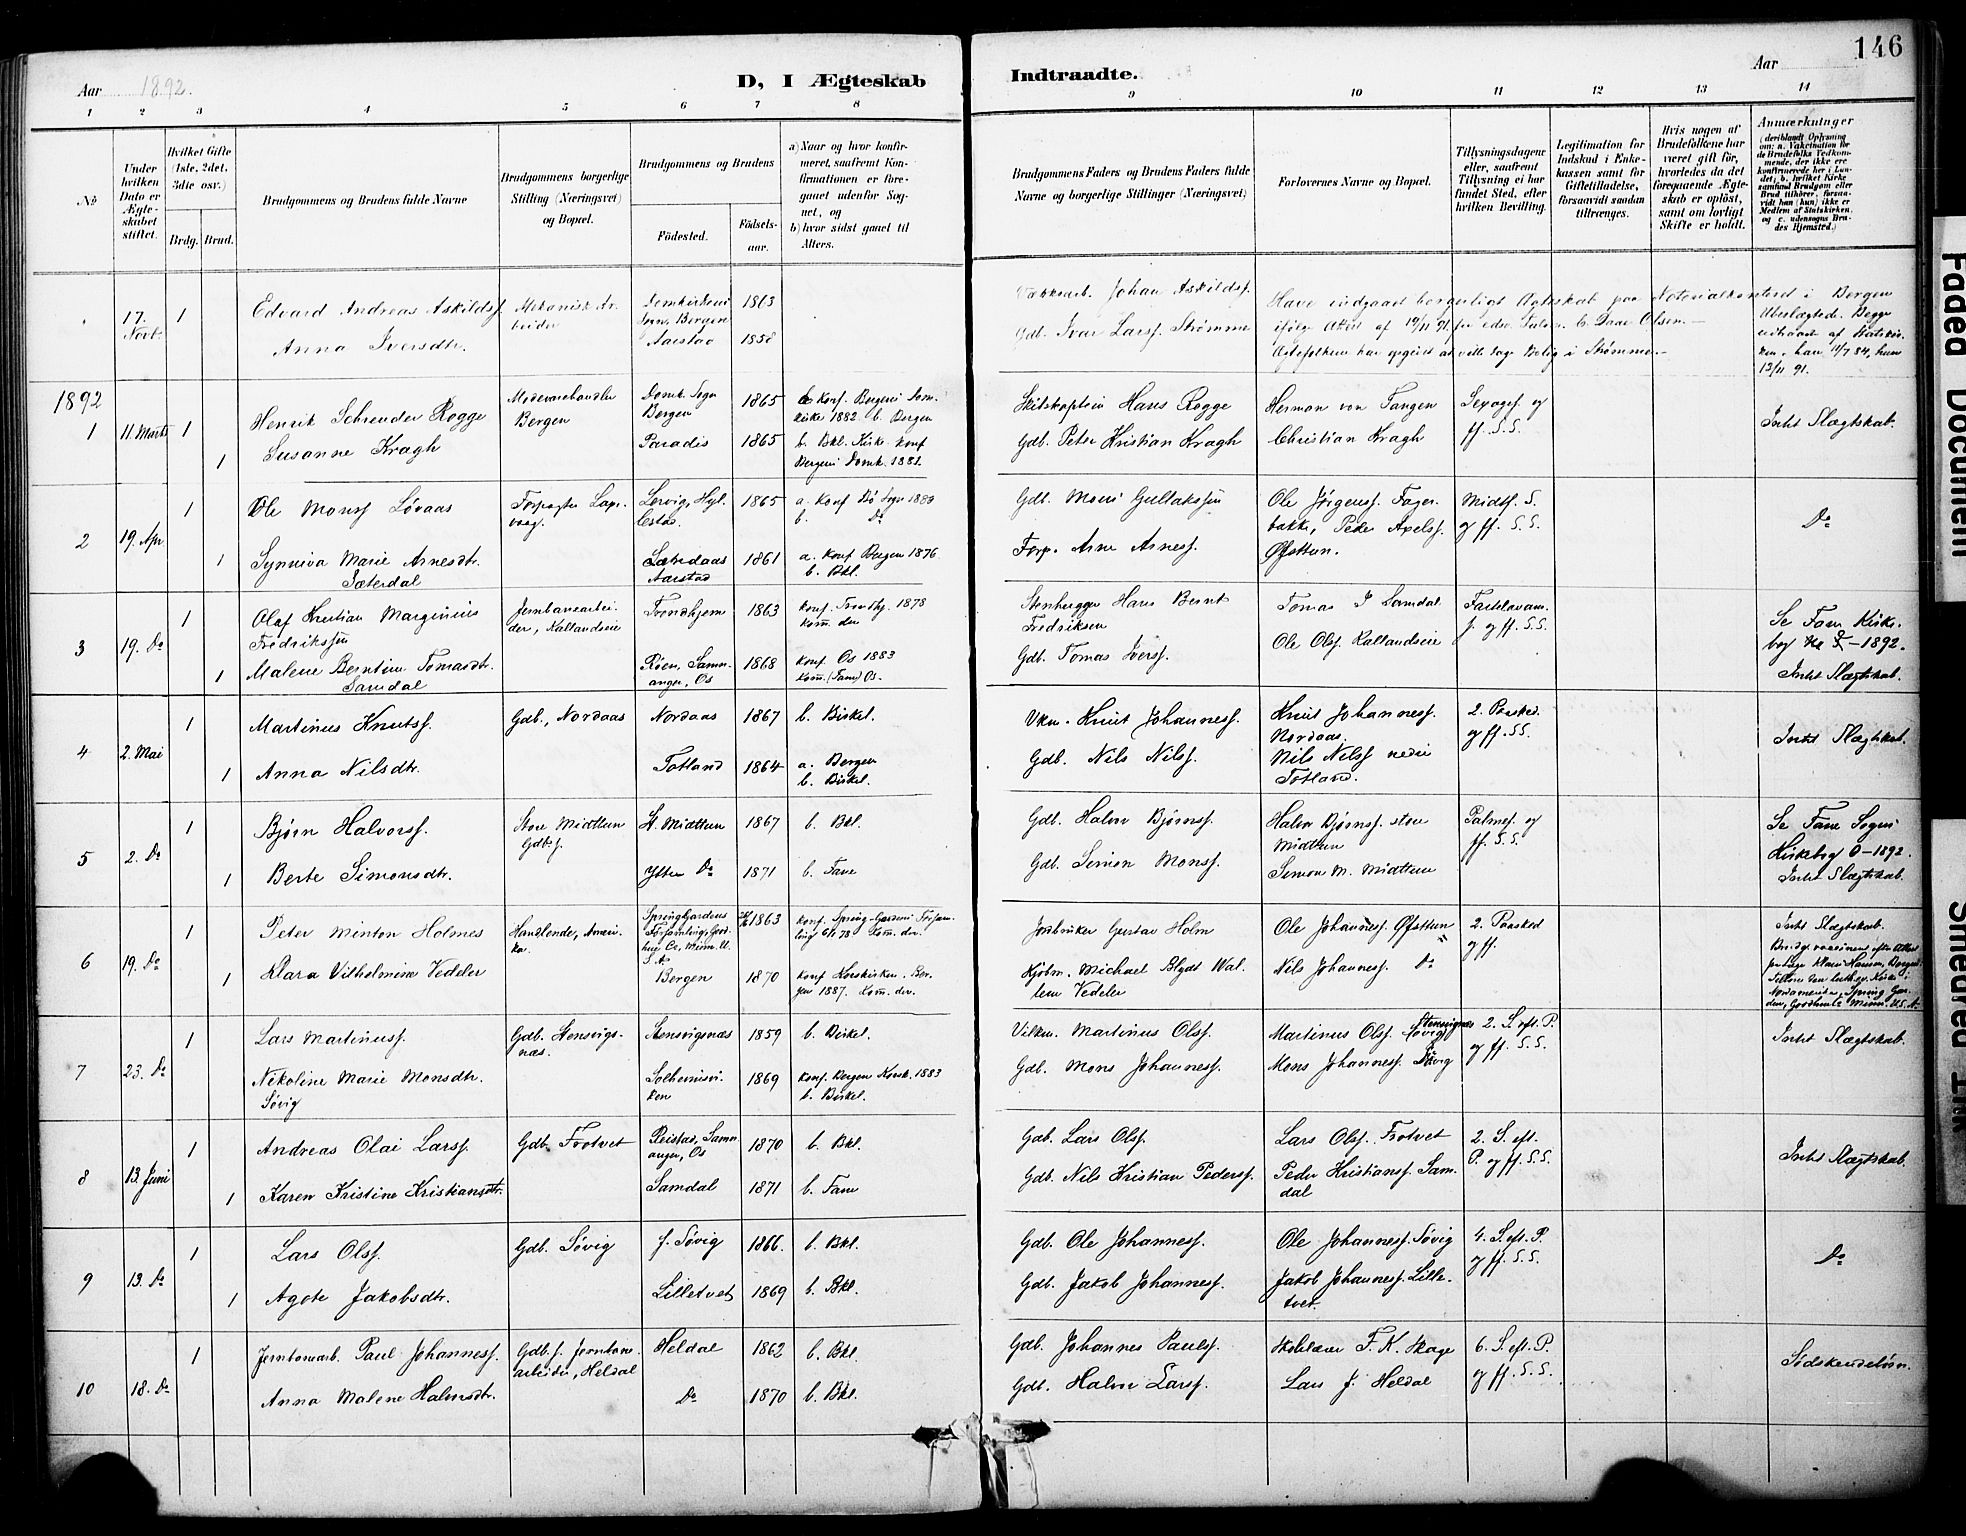 146
Aar 1892.
D, I Ægteskab Indtraadte.
Aar
1 2 3 4 5 6 7 8 9 10 11 12 13 14
No
Under hvilken Dato er Ægteskabet stiftet.
Hvilket Gifte (1ste, 2det, 3die osv.)
Brdg. Brud.
Brudgommens og Brudens fulde Navne
Brudgommens borgerlige Stilling (Næringsvei) og Bopæl.
Brudgommens og Brudens
Födested.
Födselsaar.
a) Naar og hvor konfirmeret, saafremt Konfirmationen er foregaaet udenfor Sognet, og
b) hvor sidst gaaet til Alters.
Brudgommens Faders og Brudens Faders fulde Navne og borgerlige Stillinger (Næringsvei)
Forlovernes Navne og Bopæl.
Tillysningsdagene eller, saafremt Tillysning ei har fundet Sted, efter hvilken Bevilling.
Legitimation for Indskud i Enkekassen samt for Giftetilladelse, forsaavidt saadan tiltrænges.
Hvis nogen af Brudefolkene har været gift før, hvorledes da det foregaaende Ægteskab er oplöst, samt om lovligt Skifte er holdt.
Anmærkninger
(deriblandt Oplysning om: a. Vakcination for de Brudefolks Vedkommende, der ikke ere konfirmerede her i Landet; b. hvilket Kirkesamfund Brudgom eller Brud tilhörer, forsaavidt han (hun) ikke er Medlem af Statskirken, og c. udensogns Brudes Hjemsted.)
17. Novbr. 1 Edvard Andreas Askildsf. Mekanisk Arbeider Domkirkens Sogn, Bergen 1863
Anna Iversdtr. Aarstad 1858
Johan Askildsf.
Gdb. Ivar Larsf. Strømme
Have indgaaet borgerligt Ægteskab paa Notarialkontoret i Bergen
ifølge Attest af 19/11 91 fra Olsen.
Ægtefolkene har opgivet at ville tage Bolig i Strømme.
Ubeslægtede. Begge udtraadt af Statskirken, han 11/7 84, hun 13/11 91.
1892
1 11 Marts 1 Henrik Schrøder Rogge Modevarehandler Bergen Domk. Sogn Bergen 1865 konf. Bergens Domkirke 1882 b. Bergen
1 Susanne Kragh Paradis 1865 b. Bkl. Kirk. konf Bergens Domk. 1881.
Skibskaptein Hans Rogge Herman von Tangen Sexages. og ff. S.S. Intet Slægtskab.
Gdb. Peter Kristian Kragh Christian Kragh
2 19. Apr 1 Ole Monsf Løvaas 1865 a. konf Bø Sogn 1880 b. Do
1 Synneva Marie Arnesdtr. Sæterdal Aarstad 1861 a. konf Bergen 1876 b. Bkl.
Gdb. Mons Gullakssøn Ole Jørgensf. Fagerbakke, Peder Axelsf. Øfsttun. Midtf. S. og ff. S.S. Do
Forp. Arne Arnesf.
3 19. Do 1 Olaf Kristian Marginius Fredrikssøn Jernbanearbeider, Kallandseie Trondhjem 1863 konf. Trondhj. 1878 kom. der
1 Malene Berntine Tomasdtr. Samdal Røen, Samnanger, Os 1868 konf. Os 1883 kom. (Fane) Os.
Stenhugger Hans Bernt Fredriksen Tomas I Samdal Fastelavans. og ff. S.S. Se Fane Kirkebog – 1892.
Gdb. Tomas Iversf. Ole Olsf. Kallandseie Intet Slægtskab.
4 2. Mai 1 Martinus Knutsf. Gdb., Nordaas Nordaas 1867 b. Birkel.
1 Anna Nilsdtr. Totland 1864 a. Bergen b. Birkel.
Vkm. Knut Johannesf. Knut Johannesf. Nordaas. 2. Paasked. og ff. S.S. Intet Slægtskab.
Gdb. Nils Nilsf. Nils Nilsf nedre Totland.
5 2. Do 1 Bjørn Halvorsf. Store Midttun Gdbs. St. Midttun 1867 b. Bkl.
1 Berte Simonsdtr. Ytter Do 1871 b. Fane
Gdb. Halvor Bjørnsf. Halvor Bjørnsf. store Midttun Palmes. og ff. S.S. Se Fane Sogns Kirkebog 0–1892.
Gdb. Simon Monsf. Simon M. Midttun Intet Slægtskab.
6 19. Do 1 Peter Minton Holmes Handlende, Amerika. Spring Gardens Forsamling, Goodhue Co, Minn. U.S.A. 1863 konf. Spring-Gardens Forsamling 78 Kom. der.
1 Klara Vilhelmine Vedeler Bergen 1870 konf Korskirken, Bergen 1887. Kom. der.
Jordbruker Gustav Holm Ole Johannesf. Øfsttun 2. Paasked og ff
Kjøbm. Michael Blydt Wallem Vedeler Nils Johannesf. Do
Intet Slægtskab.
7 23. Do 1 Lars Martinusf. Gdb. Stensvigsnæs. Stensvignæs 1859 b. Birkel.
1 Nikoline Marie Monsdtr. Søvig Solheimsviken 1869 konf Bergen Korsk. 1883 b. Birkel.
Vilkm. Martinus Olsf. Martinus Olsf. Stensvignæs 2. S. eft. P. og ff. S.S. Intet Slægtskab.
Gdb. Mons Johannesf. Mons Johannesf. Søvig
8 13. Juni 1 Andreas Olai Larsf. Gdb. Frotvet Reistad, Samnanger, Os 1870 b. Bkl.
1 Karen Kristine Kristiansdtr. Samdal 1871 b. Fane
Gdb. Lars Olsf. Lars Olsf. Frotvet 2. S. eft. P. og ff. S.S. Intet Slægtskab.
Gdb. Nils Kristian Pedersf. Peder Kristiansf. Samdal
9 13. Do 1 Lars Olsf. Gdb. Søvig f. Søvig 1866. b. Bkl.
1 Agote Jakobsdtr. Lilletvet 1869 b. Bkl.
Gdb. Ole Johannesf. Ole Johannesf. Søvig 4. S. eft. P. og ff. S.S. Do
Gdb. Jakob Johannesf. Jakob Johannesf. Lilletvet.
10 18. Do 1 Jernbanearb. Paul Johannesf. Gdb. s. Jernbanearbeider, Heldal Heldal 1862 b. Bkl.
Anna Malene Halvorsdtr. Do 1870 b. Bkl.
Gdb. Johannes Paulsf. Skolelærer T. K. Skage 6. S. eft. P. og ff. S.S. Sødskendebørn.
Gdb. Halvor Larsf. Lars J. Heldal
Faded Document
Smeared Ink